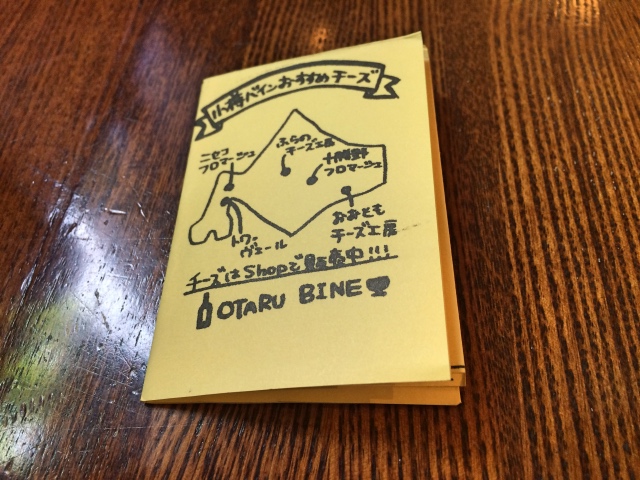 小樽バインおすすめチーズ
ニセコ
フロマージュ
ふらの
チーズ工房
十勝野
フロマージュ
おおとも
チーズ工房
トワ・
ヴェール
チーズはShopで販売中!!!
OTARU BINE